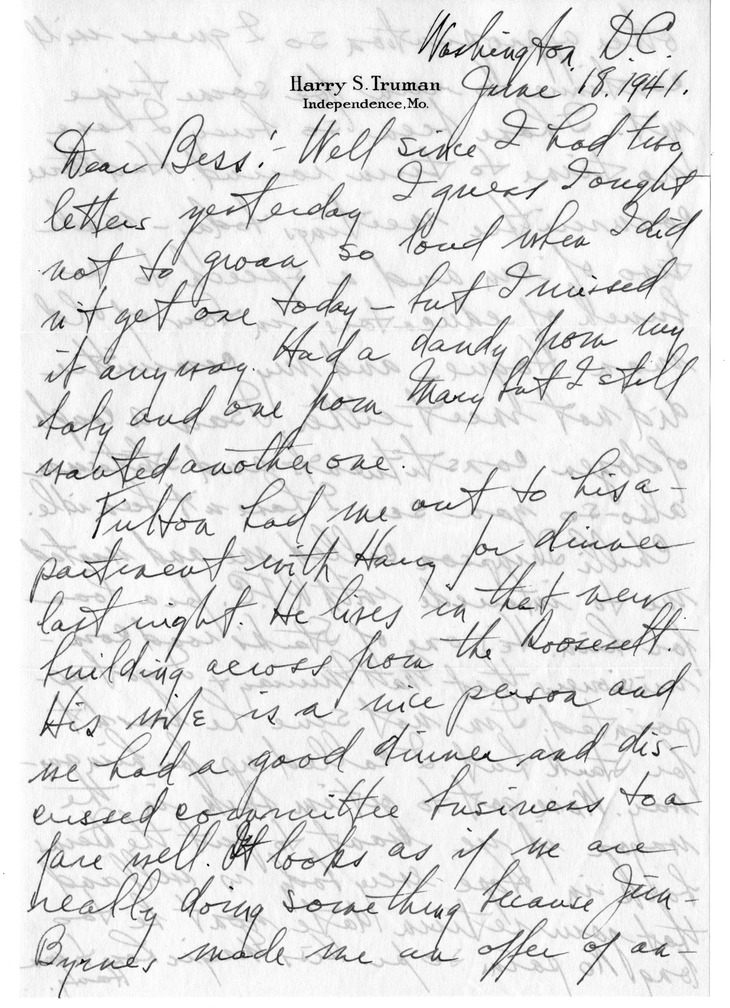 Washington, D.C.
Harry S. Truman
Independence, Mo.
June 18, 1941.
Dear Bess:- Well since I had two
letters yesterday I guess I ought
not to groan so loud when I did
n't get one today - but I missed
it anyway. Had a dandy from my
baby and one from Mary but I still
wanted another one.
Fulton had me out to his a-
partment with Harry for dinner
last night. He lives in that new
building across from the Roosevelt.
His wife is a nice person and
we had a good dinner and dis-
cussed committee business to a
fare well. It looks as if we are
really doing something because Jim-
Byrnes made me an offer of an-